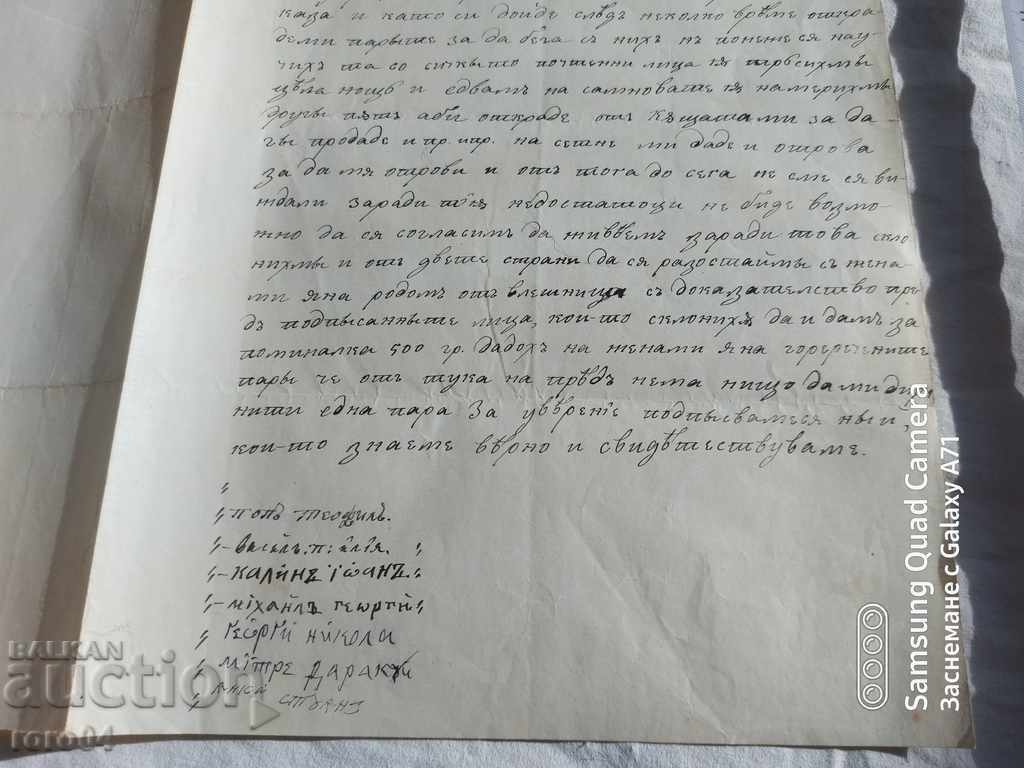 каза и като си дойде слѣдъ неколко врѣме откра-
дели парыте за да бега съ нихъ нъ понеже ся нау-
чихъ та со сичкыто почтенни лица ѭ търсихмы
цѣла нощь и едвамъ на самноваше ѭ намерихмы
другы пѫть аби открадe отъ кѫщатами за да
гы продаде и пр. ипр. на сетне ми даде и отрова
за да мя отрови и отъ тога до сега не сме ся ви-
ждали заради тѣѩ недостатоци не биде возмо-
жно да ся согласимъ да живѣемъ заради това скло
нихмы и отъ двете страни да ся разостаймы съ жена-
ми яна родомъ отъ влешница съ доказателство пре-
дъ подписанныте лица, кои-то склонихѫ да и дамъ за
поминалка 500 гр. Дадохъ на женами яна горереченните
пары че отъ тука на прѣдъ нема нищо дами ди,
нити една пара За увѣрение подписвамеся ный,
кои-то знаеме вѣрно и свидѣтествуваме.
"
"попъ теофилъ.
"-василъ. п: илїя. "
"-калинъ іѡанъ."
"-міхаилъ георгїй"
" ГЕѠРГЇ НИКОЛА
" Мїтре Дарак
" СТѠѦНЪ
BALKAN
auction
roro04
Samsung Quad Camera
Заснемане с Galaxy A71